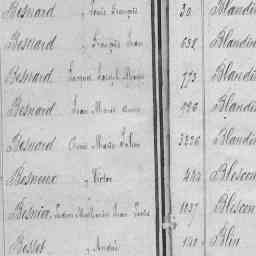 Besnard , Louis François 30 Blandin
Besnard , François Jean 638 Blandin
Besnard Joseph Marie 773 Blandin
Besnard Jean Marie 996 Blandin
Besnard Marie Julien 3226 Blandin
Besneux , Victor 444 Blescon
Besnier, Jean Louis 1037 Blescon
Besset , André Blin